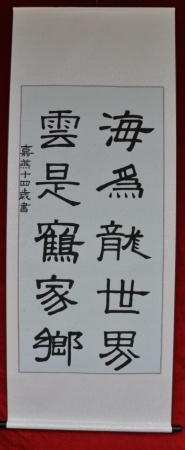 海為龍世界
雲是鶴家鄉
嘉燕十四歲書